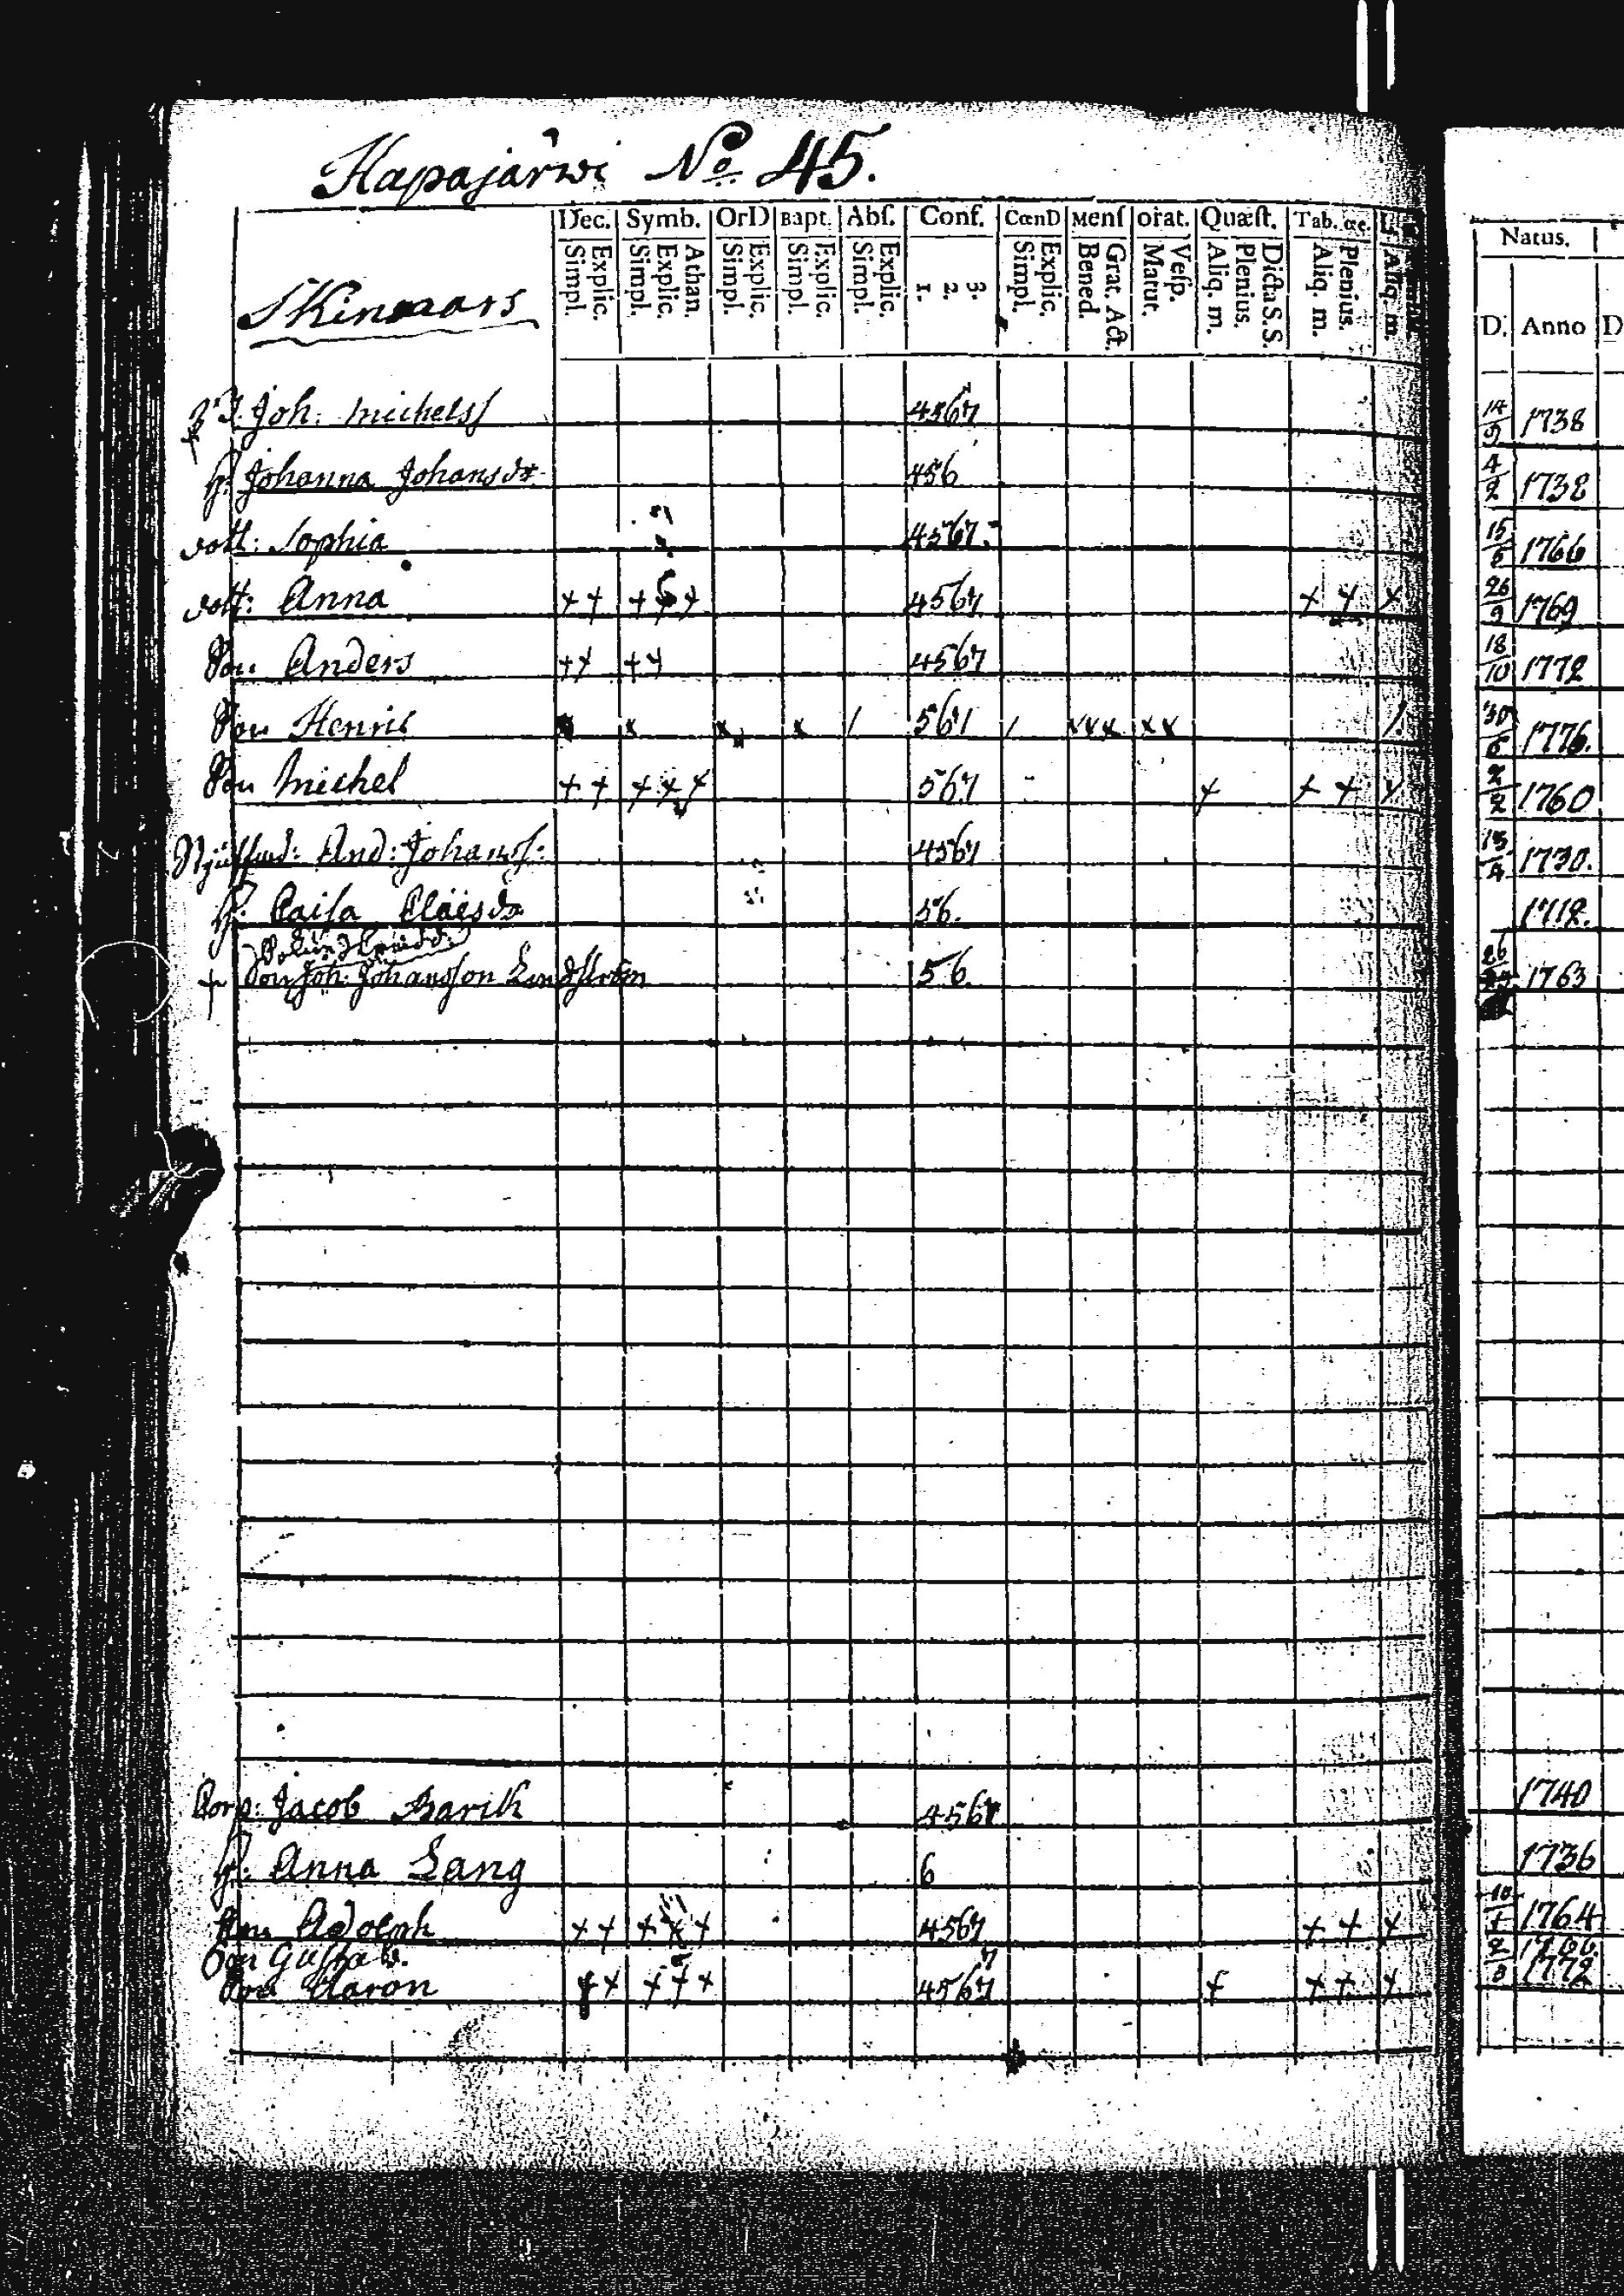 Hapajärwi No 45.
Dec. Symb. OrD Bapt. Abſ. Conf. CœnD Menſ orat. Quæſt. Tab. œc.
Simpl. Explic. Simpl. Explic. Athan. Simpl. Explic. Simpl. Explic. Simpl. Explic. 1. 2. 3. Simpl. Explic. Bened. Grat. Act. Matut. Veſp. Aliq. m. Plenius. Dicta S. S. Aliq. m. Plenius. Aliq. m.
Natus.
D. Anno D
Joh: Michelss 4567 14/9 1738
h: Johanna Johansdr 456 4/2 1732
dott: Sophia 4567. 15/5 1766
dott: Anna ++ +++ 4567 + + x 26/9 1769
Son Anders ++ ++ 4567 18/10 1772
Son Henric x x x / 567 / xxx xx 1776.
Son Michel ++ +++ 567 + + + x 2/2 1760
And: Johanss: 4567 1730.
h: Caisa Cläesdr 56. 1712.
+ Son Joh: Johansson Lindström 56. 1763
Corp: Jacob Barck 4567 1740
h: Anna Lang 6 1736
Son Adolph ++ +++ 4567 + + x 10/1 1764
Son Gustav. 7
Son Aaron ++ +++ 4567 + ++ + 1772